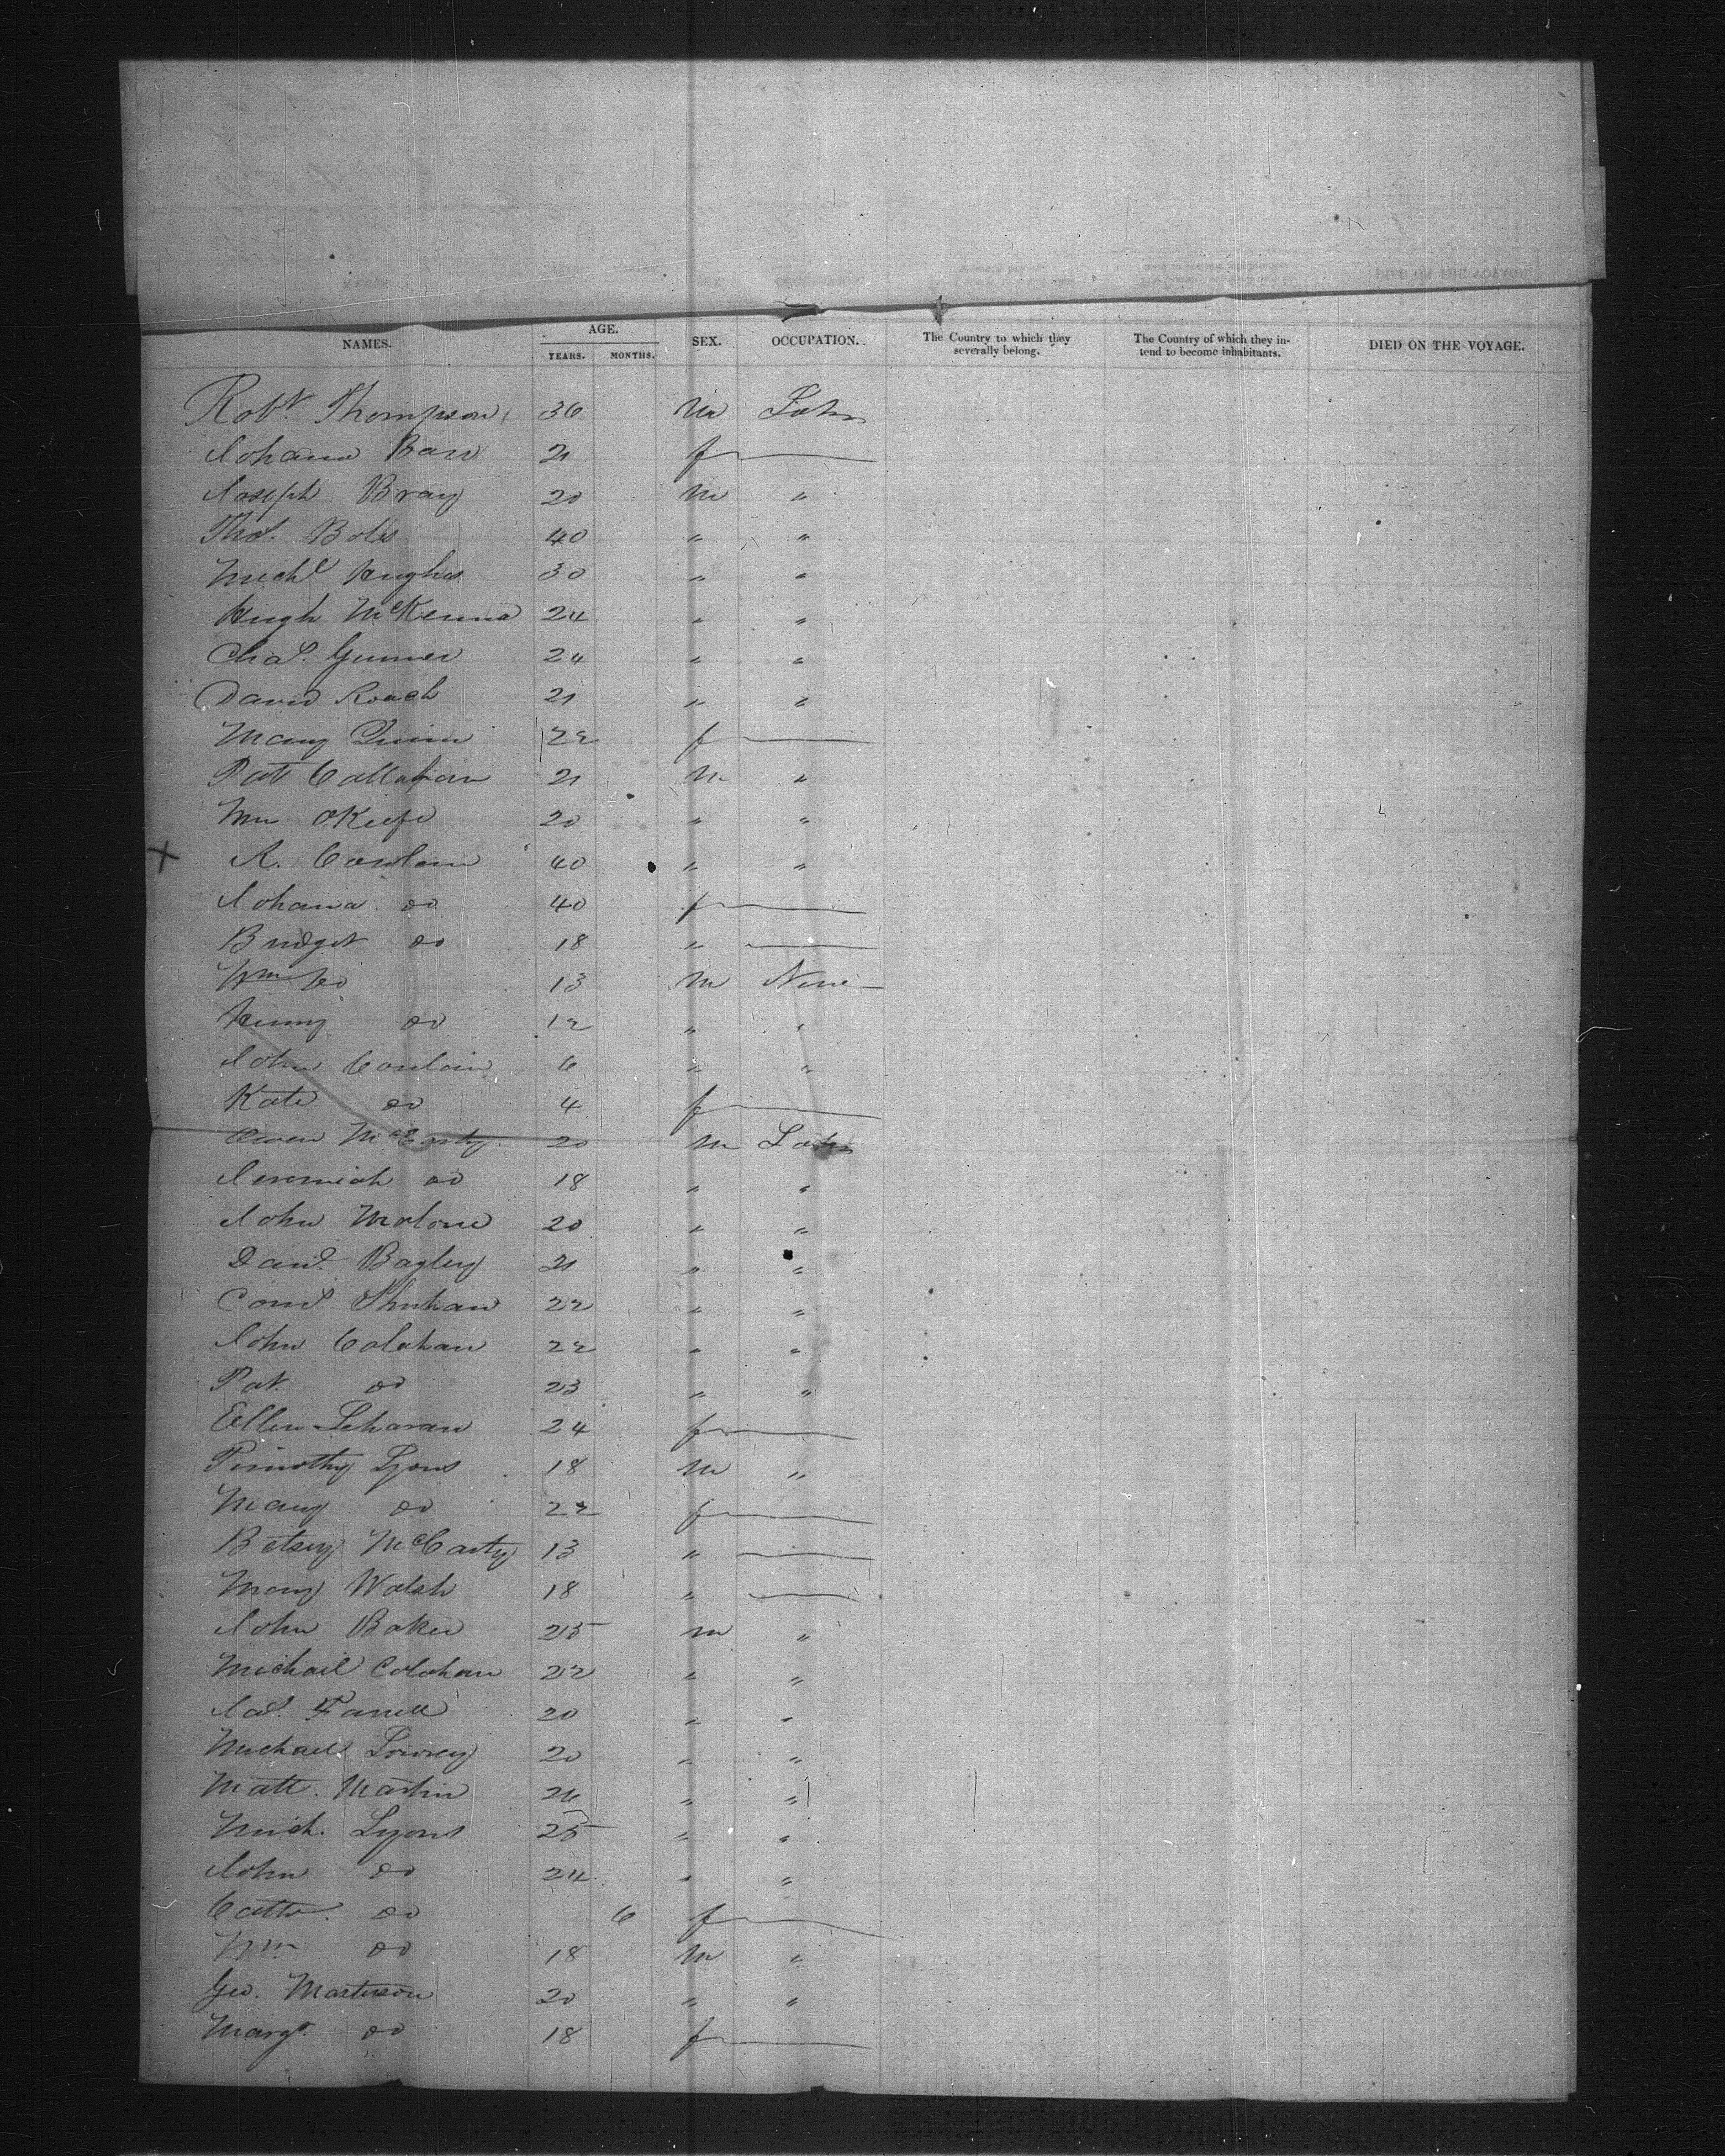 NAMES. AGE. SEX. OCCUPATION. The Country to which they severally belong. The Country of which they intend to become inhabitants. DIED ON THE VOYAGE.
YEARS. MONTHS.
Robt. Thompson 36 m Labr
Johana Barr 21 f
Joseph Bray 20 m "
Thos. Boles 40 " "
Michl Hughes 30 " "
Hugh McKenna 24 " "
Chas. Gunner 24 " "
David Roach 21 " "
Mary Quinn 22 f
Pat Callahan 21 m "
Wm OKeefe 20 " "
A. Conlain 40 " "
Johana do 40 f
Bridget do 18 "
Wm do 13 m None
Henry do 12 " "
John Conlain 6 " "
Kate do 4 f
Owen McCarty 20 m Labr
Jeremiah do 18 " "
John Malone 20 " "
Danl. Bagley 21 " "
Corns Shuhan 22 " "
John Calahan 22 " "
Pat. do 23 " "
Ellen Leharan 24 f
Timothy Lyons 18 m "
Mary do 22 f
Betsey McCarty 13 "
Mary Walsh 18 "
John Baker 25 m "
Michail Calahan 22 " "
Jas. Farrell 20 " "
Michael Lowrey 20 " "
Matt. Martin 26 " "
Mich. Lyons 25 " "
John do 24 " "
Cathe. do 6 f
Wm do 18 m "
Geo. Masterson 20 " "
Margt. do 18 f